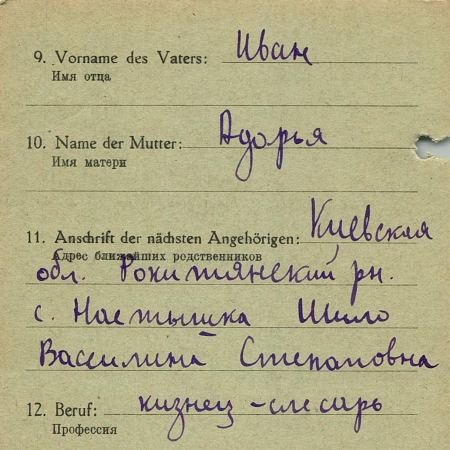 9. Vorname des Vaters: Иван
Имя отца
10. Name der Mutter: Адорья
Имя матери
11. Anschrift der nächsten Angehörigen: Киевская
Адрес ближайших родственников
обл. Рокитянский рн.
с. Настышка Шило
Василина Степановна
12. Beruf: кизнец - слесарь
Профессия